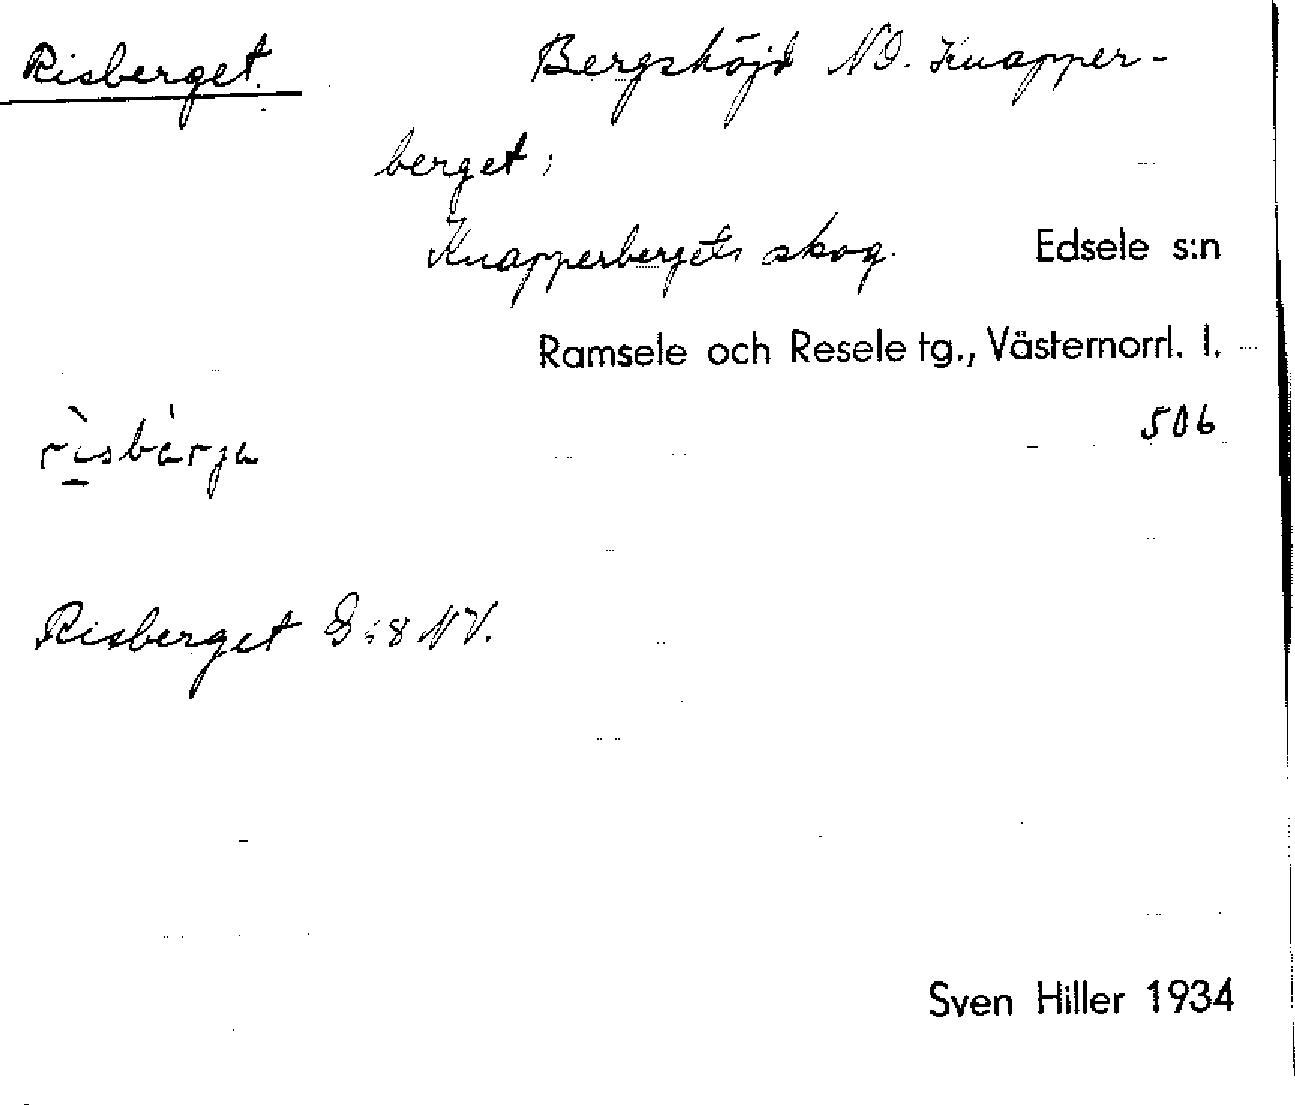 Risberget. Bergshöjd NO. Knapper-
berget;
Knapperbergets skog. Edsele s:n
Ramsele och Resele tg., Västernorrl. l.
506
Risberget G:8 NV.
Sven Hiller 1934